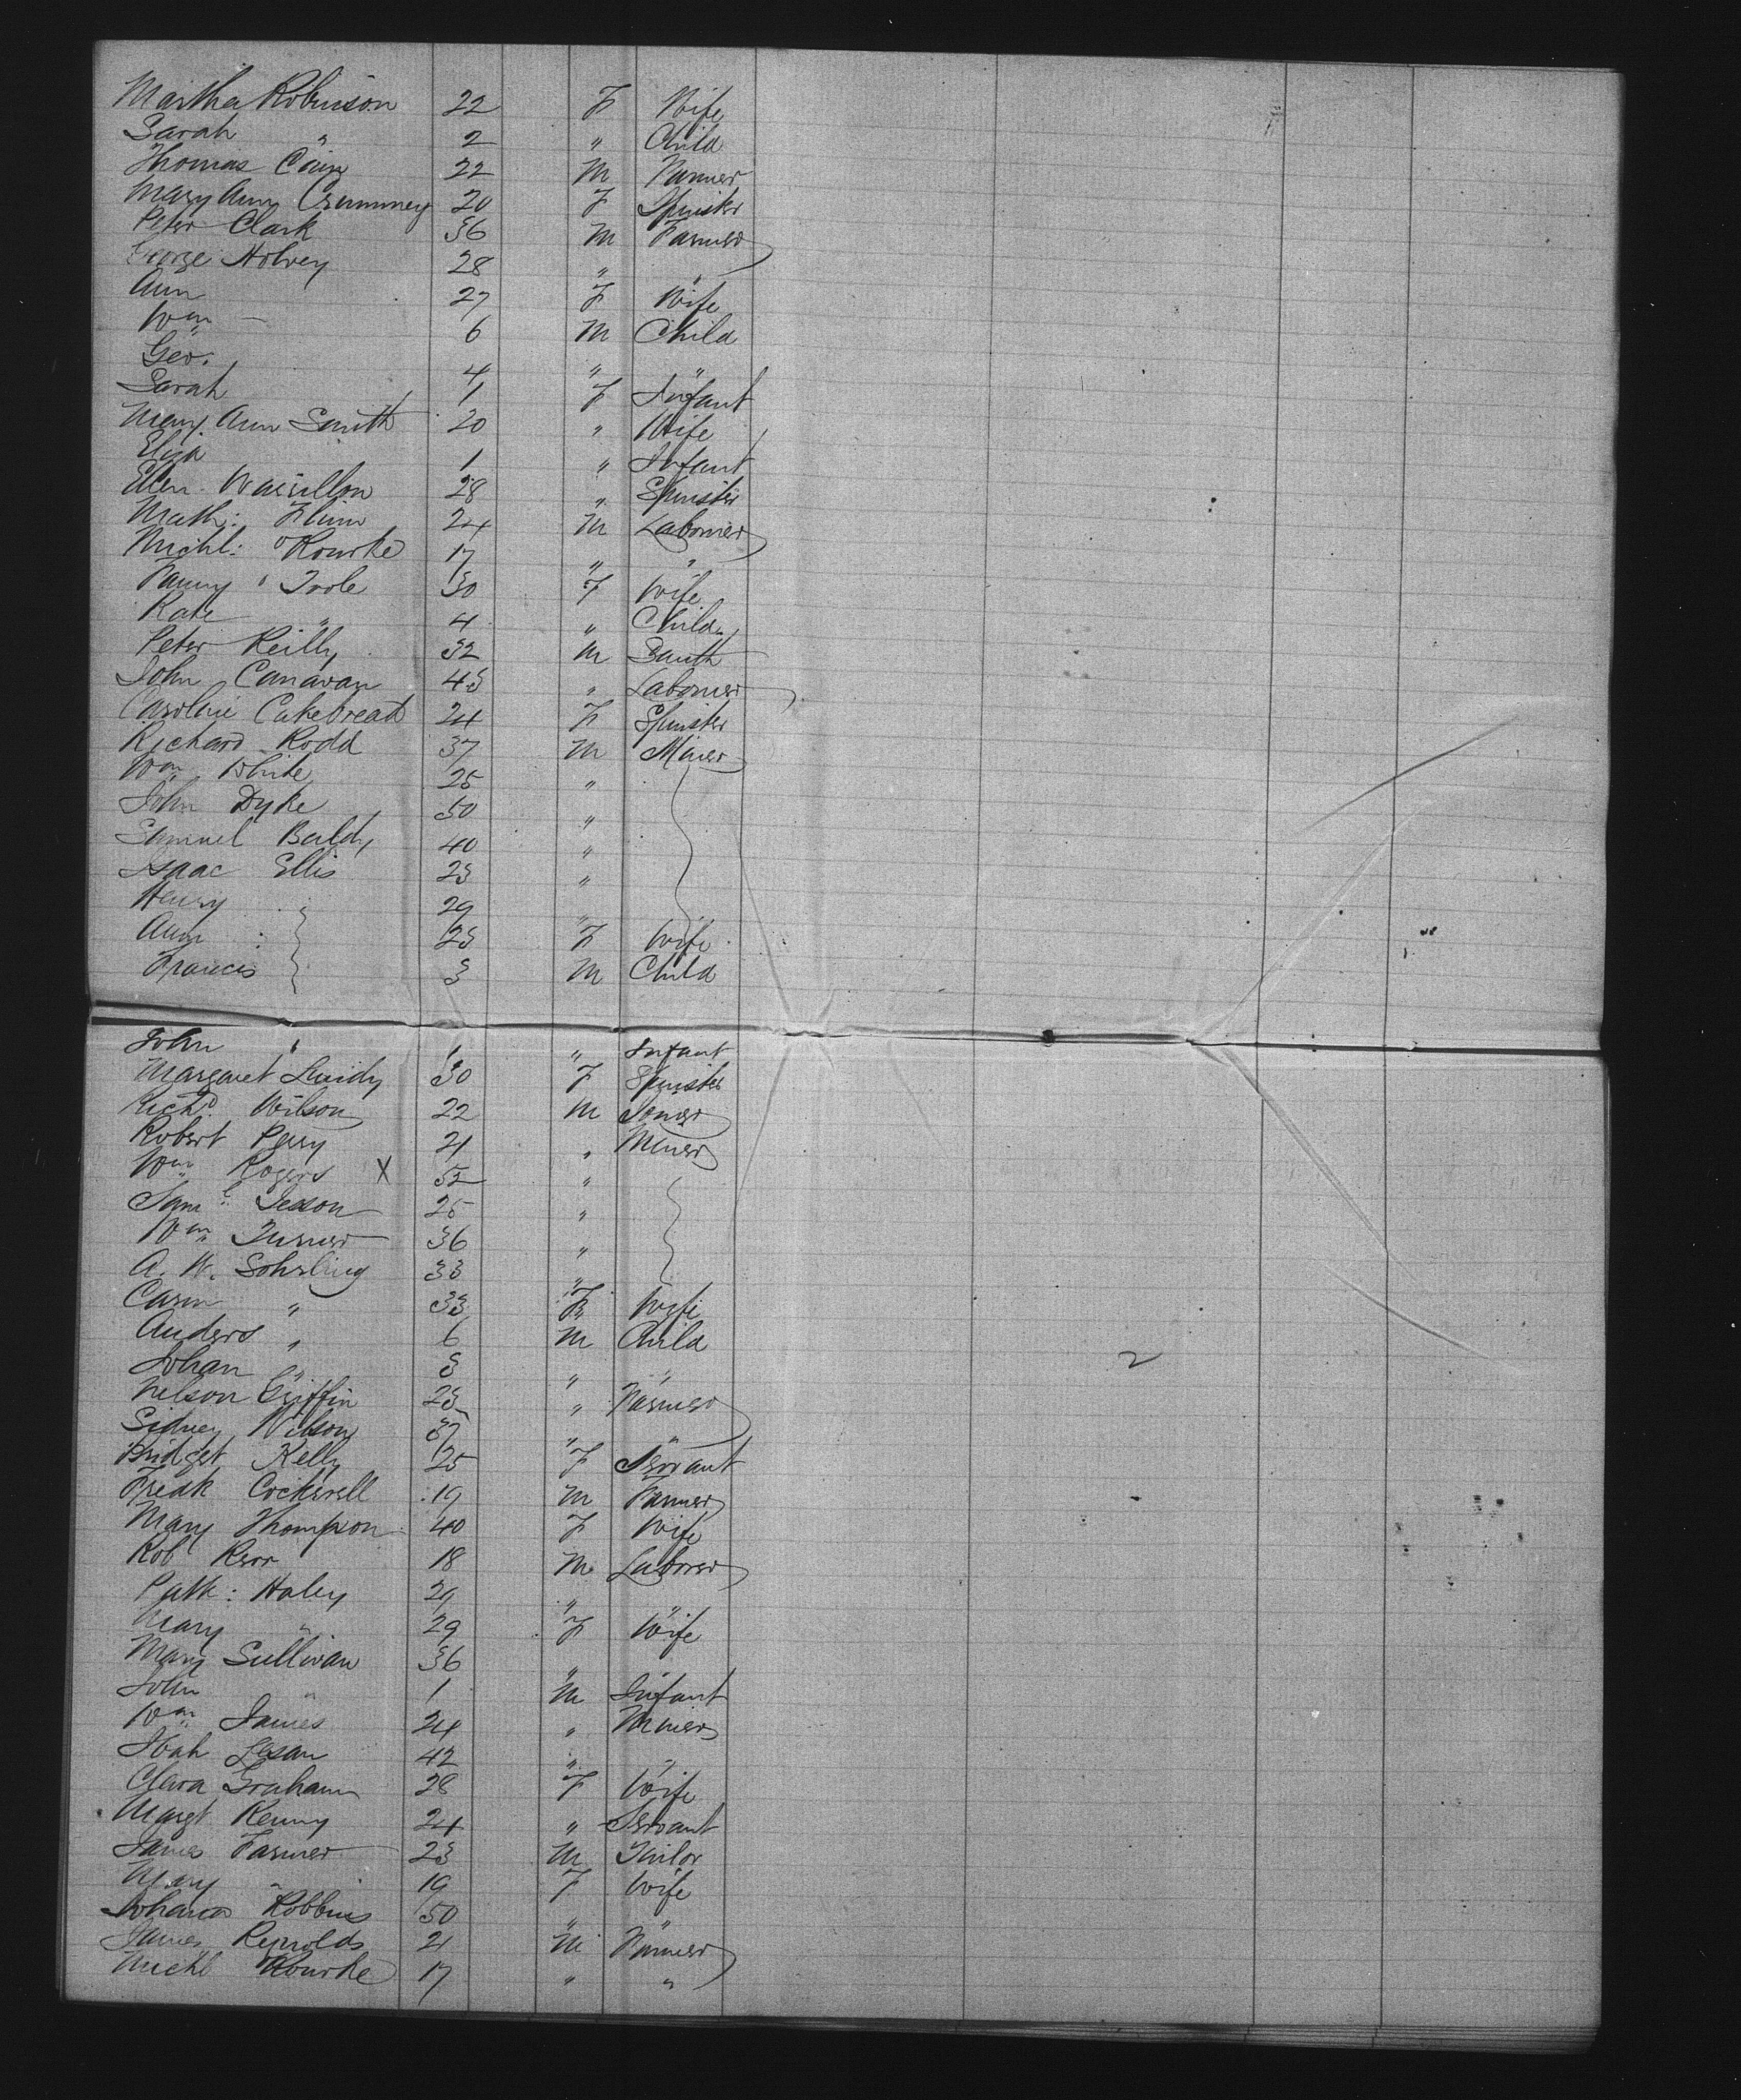 Martha Robinson 22 F Wife
Sarah " 2 " Child
Thomas Cain 22 M Farmer
Mary Ann Crummey 20 F Spinster
Peter Clark 36 M Farmer
George Holvey 28 " "
Ann 27 F Wife
Wm 6 M Child
Geo. 4 " "
Sarah 1 F Infant
Mary Ann Smith 20 " Wife
Eliza 1 " Infant
Ellen 28 " Spinster
Math: Flinn 24 M Laborer
Michl: O'Rourke 17 " "
Fanny O'Toole 30 F Wife
Kate " 4 " Child
Peter Reilly 32 M Smith
John Canavan 43 " Laborer
Caroline Cakebread 24 F Spinster
Richard Rodd 37 M Miner
Wm White 25 "
John Dyke 50 "
Samuel 40 "
Isaac Ellis 23 "
Henry 29 "
Ann 23 F Wife
Francis 3 M Child
John " 1 " Infant
Margaret 30 F Spinster
Richd Wilson 22 M
Robert Perry 21 " Miner
Wm Rogers X 52 "
Saml 25 "
Wm Turner 36 "
A. W. Sohrling 33 "
Carin " 33 F Wife
Anders " 6 M Child
Johan " 3 " "
Nelson Griffin 23 " Farmer
Sidney Wilson 37 " "
Bridget Kelly 25 F Servant
Fredk Cockerell 19 M Farmer
Mary Thompson 40 F Wife
Rob Kerr 18 M Laborer
Patk: Haley 29 " "
Mary " 29 F Wife
Mary Sullivan 36 "
John " 1 M Infant
Wm James 24 " Miner
42 " "
Clara Graham 28 F Wife
Margt Kenny 24 " Servant
James Farmer 23 M Tailor
Mary " 19 F Wife
Johanna Robbins 50 " "
James Reynolds 21 M Farmer
Michl O'Rourke 17 " "
2